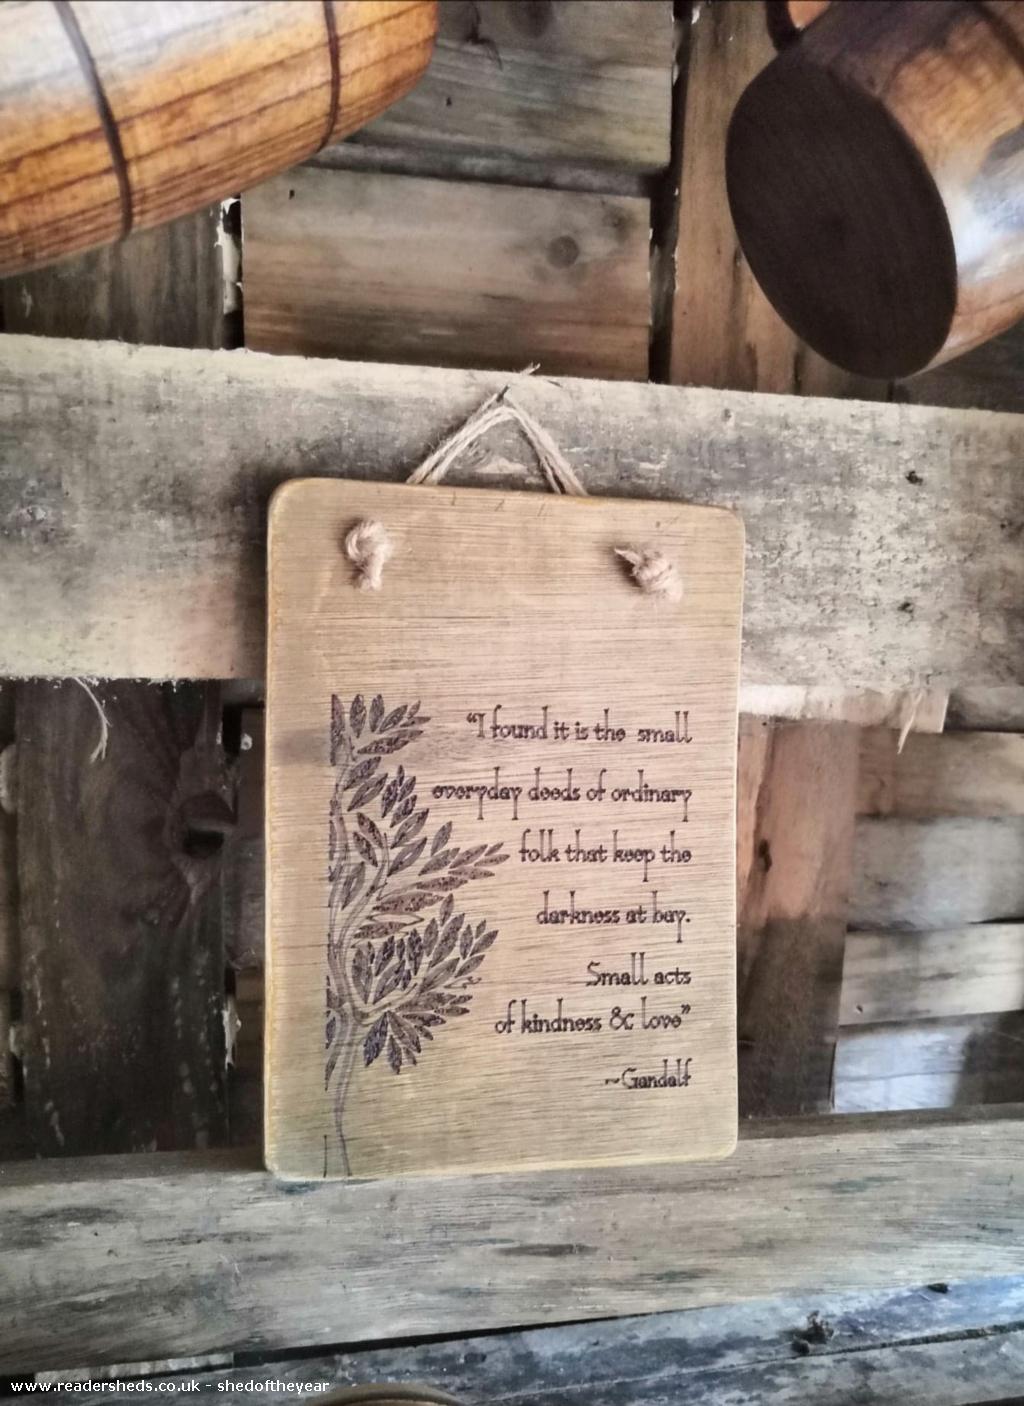 “I found it is the small
everyday deeds of ordinary
folk that keep the
darkness at bay.
Small acts
of kindness & love”
~Gandalf
www.readersheds.co.uk - shedoftheyear